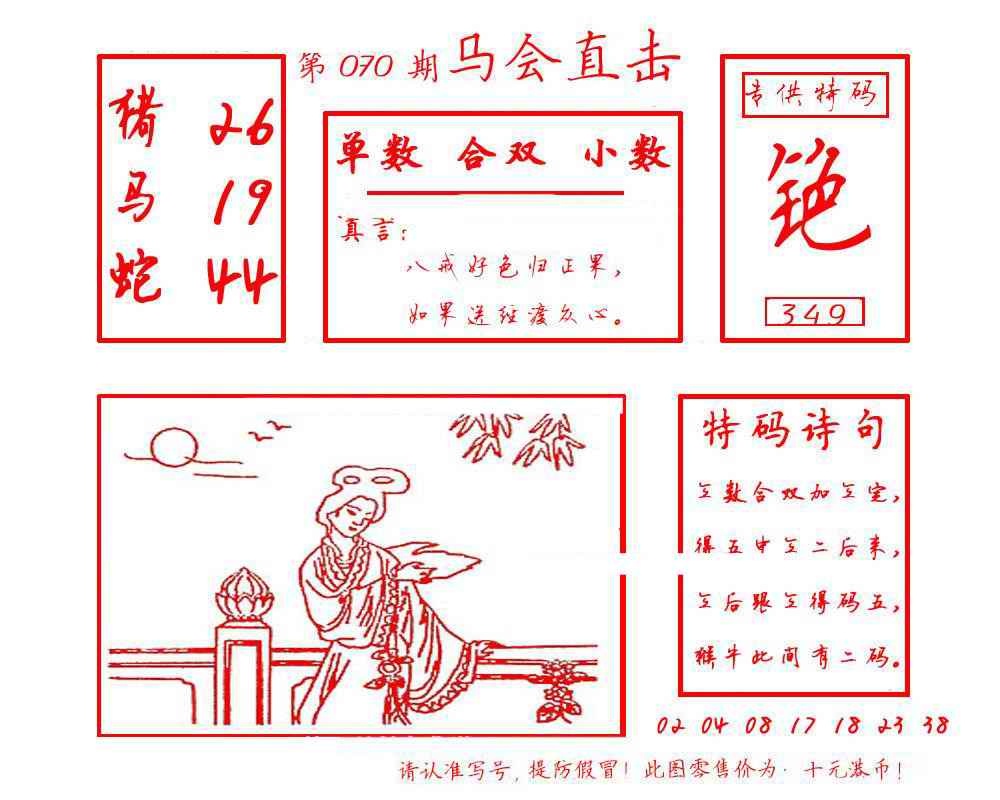 第 070 期 马会直击
猪 26
马 19
蛇 44
单数 合双 小数
真言：
八戒好色归正果，
如果送经渡众心。
专供特码
349
特码诗句
数合双加定，
得五中二后来，
后跟得码五，
猴牛此间有二码。
02 04 08 17 18 23 38
请认准写号，提防假冒！此图零售价为·十元港币！